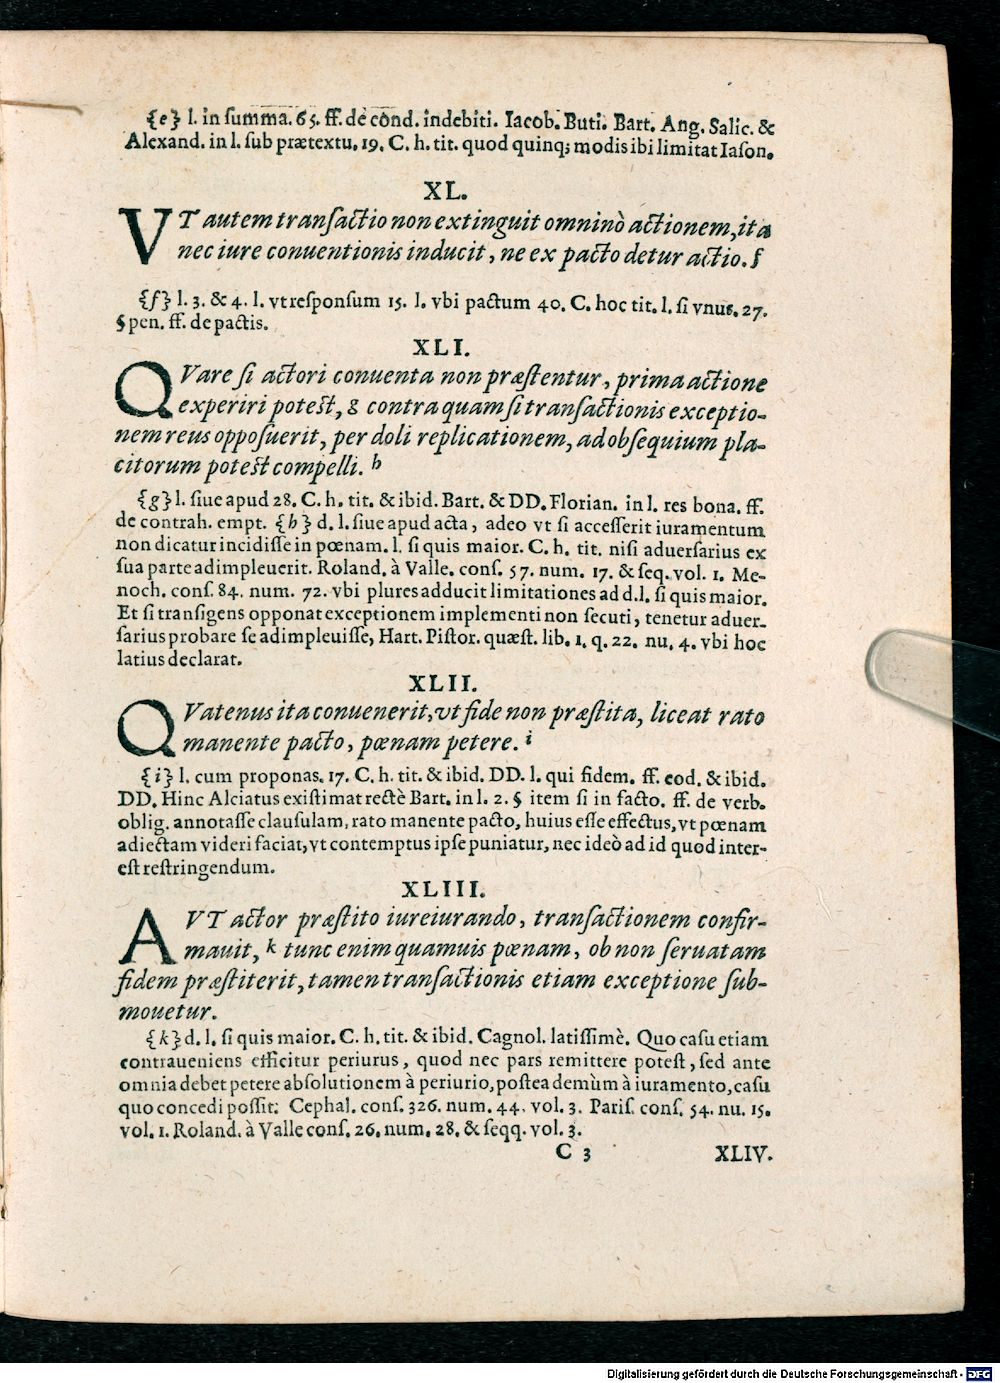 {e} l. in ſumma. 65. ff. de cond. indebiti. Iacob. Buti. Bart. Ang. Salic. &
Alexand. in l. ſub prætextu. 19. C. h. tit. quod quinq; modis ibi limitat Iaſon.
XL.
VT autem tranſactio non extinguit omninò actionem, ita
nec iure conuentionis inducit, ne ex pacto detur actio. f
{f} l. 3. & 4. l. vt reſponſum 15. l. vbi pactum 40. C. hoc tit. l. ſi vnus. 27.
§ pen. ff. de pactis.
XLI.
QVare ſi actori conuenta non præſtentur, prima actione
experiri poteſt, g contra quam ſi tranſactionis exceptio-
nem reus oppoſuerit, per doli replicationem, ad obſequium pla-
citorum poteſt compelli. h
{g} l. ſiue apud 28. C. h. tit. & ibid. Bart. & DD. Florian. in l. res bona. ff.
de contrah. empt. {h} d. l. ſiue apud acta, adeo vt ſi acceſſerit iuramentum
non dicatur incidiſſe in pœnam. l. ſi quis maior. C. h. tit. niſi aduerſarius ex
ſua parte adimpleuerit. Roland. à Valle. conſ. 57. num. 17. & ſeq. vol. 1. Me-
noch. conſ. 84. num. 72. vbi plures adducit limitationes ad d. l. ſi quis maior.
Et ſi tranſigens opponat exceptionem implementi non ſecuti, tenetur aduer-
ſarius probare ſe adimpleuiſſe, Hart. Piſtor. quæſt. lib. 1. q. 22. nu. 4. vbi hoc
latius declarat.
XLII.
QVatenus ita conuenerit, vt fide non præſtita, liceat rato
manente pacto, pœnam petere. i
{i} l. cum proponas. 17. C. h. tit. & ibid. DD. l. qui fidem. ff. eod. & ibid.
DD. Hinc Alciatus exiſtimat rectè Bart. in l. 2. § item ſi in facto. ff. de verb.
oblig. annotaſſe clauſulam, rato manente pacto, huius eſſe effectus, vt pœnam
adiectam videri faciat, vt contemptus ipſe puniatur, nec ideò ad id quod inter-
eſt reſtringendum.
XLIII.
AVT actor præſtito iureiurando, tranſactionem confir-
mauit, k tunc enim quamuis pœnam, ob non ſeruatam
fidem præſtiterit, tamen tranſactionis etiam exceptione ſub-
mouetur.
{k} d. l. ſi quis maior. C. h. tit. & ibid. Cagnol. latiſſimè. Quo caſu etiam
contraueniens efficitur periurus, quod nec pars remittere poteſt, ſed ante
omnia debet petere abſolutionem à periurio, poſtea demùm à iuramento, caſu
quo concedi poſſit: Cephal. conſ. 326. num. 44. vol. 3. Pariſ. conſ. 54. nu. 15.
vol. 1. Roland. à Valle conſ. 26. num. 28. & ſeqq. vol. 3.
C 3 XLIV.
Digitalisierung gefördert durch die Deutsche Forschungsgemeinschaft - DFG